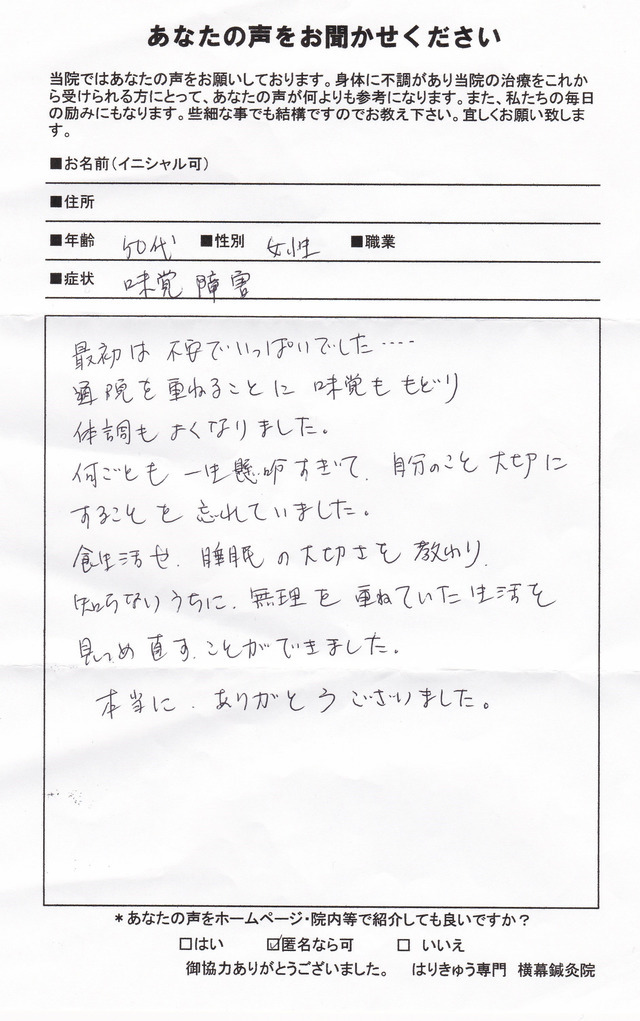 あなたの声をお聞かせください
当院ではあなたの声をお願いしております。身体に不調があり当院の治療をこれか
ら受けられる方にとって、あなたの声が何よりも参考になります。また、私たちの毎日
の励みにもなります。些細な事でも結構ですのでお教え下さい。宜しくお願い致しま
す。
■お名前(イニシャル可)
■住所
■年齢 50代 ■性別 女性 ■職業
■症状 味覚障害
最初は不安でいっぱいでした‥‥
通院を重ねることに味覚ももどり
体調もよくなりました。
何ごとも一生懸命すぎて、自分のこと大切に
することを忘れていました。
食生活や、睡眠の大切さを教わり、
知らないうちに、無理を重ねていた生活を
見つめ直すことができました。
本当に、ありがとうございました。
*あなたの声をホームページ・院内等で紹介しても良いですか?
□はい ☑匿名なら可 □ いいえ
御協力ありがとうございました。 はりきゅう専門 横幕鍼灸院